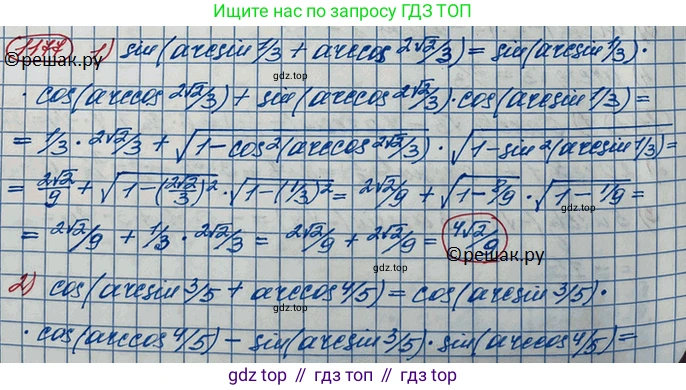 Ищите нас по запросу ГДЗ ТОП
1177 1) sin(arcsin 1/3 + arccos 2√2/3) = sin(arcsin 1/3) ·
©reшак.ру
gdz.top
· cos(arccos 2√2/3) + sin(arccos 2√2/3) · cos(arcsin 1/3) =
= 1/3 · 2√2/3 + √(1-cos²(arccos 2√2/3)) · √(1-sin²(arcsin 1/3)) =
= 2√2/9 + √(1-(2√2/3)²) · √(1-(1/3)²) = 2√2/9 + √(1-8/9) · √(1-1/9) =
gdz.top
= 2√2/9 + 1/3 · 2√2/3 = 2√2/9 + 2√2/9 = 4√2/9
©reшак.ру
gdz.top
2) cos(arcsin 3/5 + arccos 4/5) = cos(arcsin 3/5) ·
· cos(arccos 4/5) - sin(arcsin 3/5) · sin(arccos 4/5) =
gdz.top
gdz top // гдз топ // gdz.top